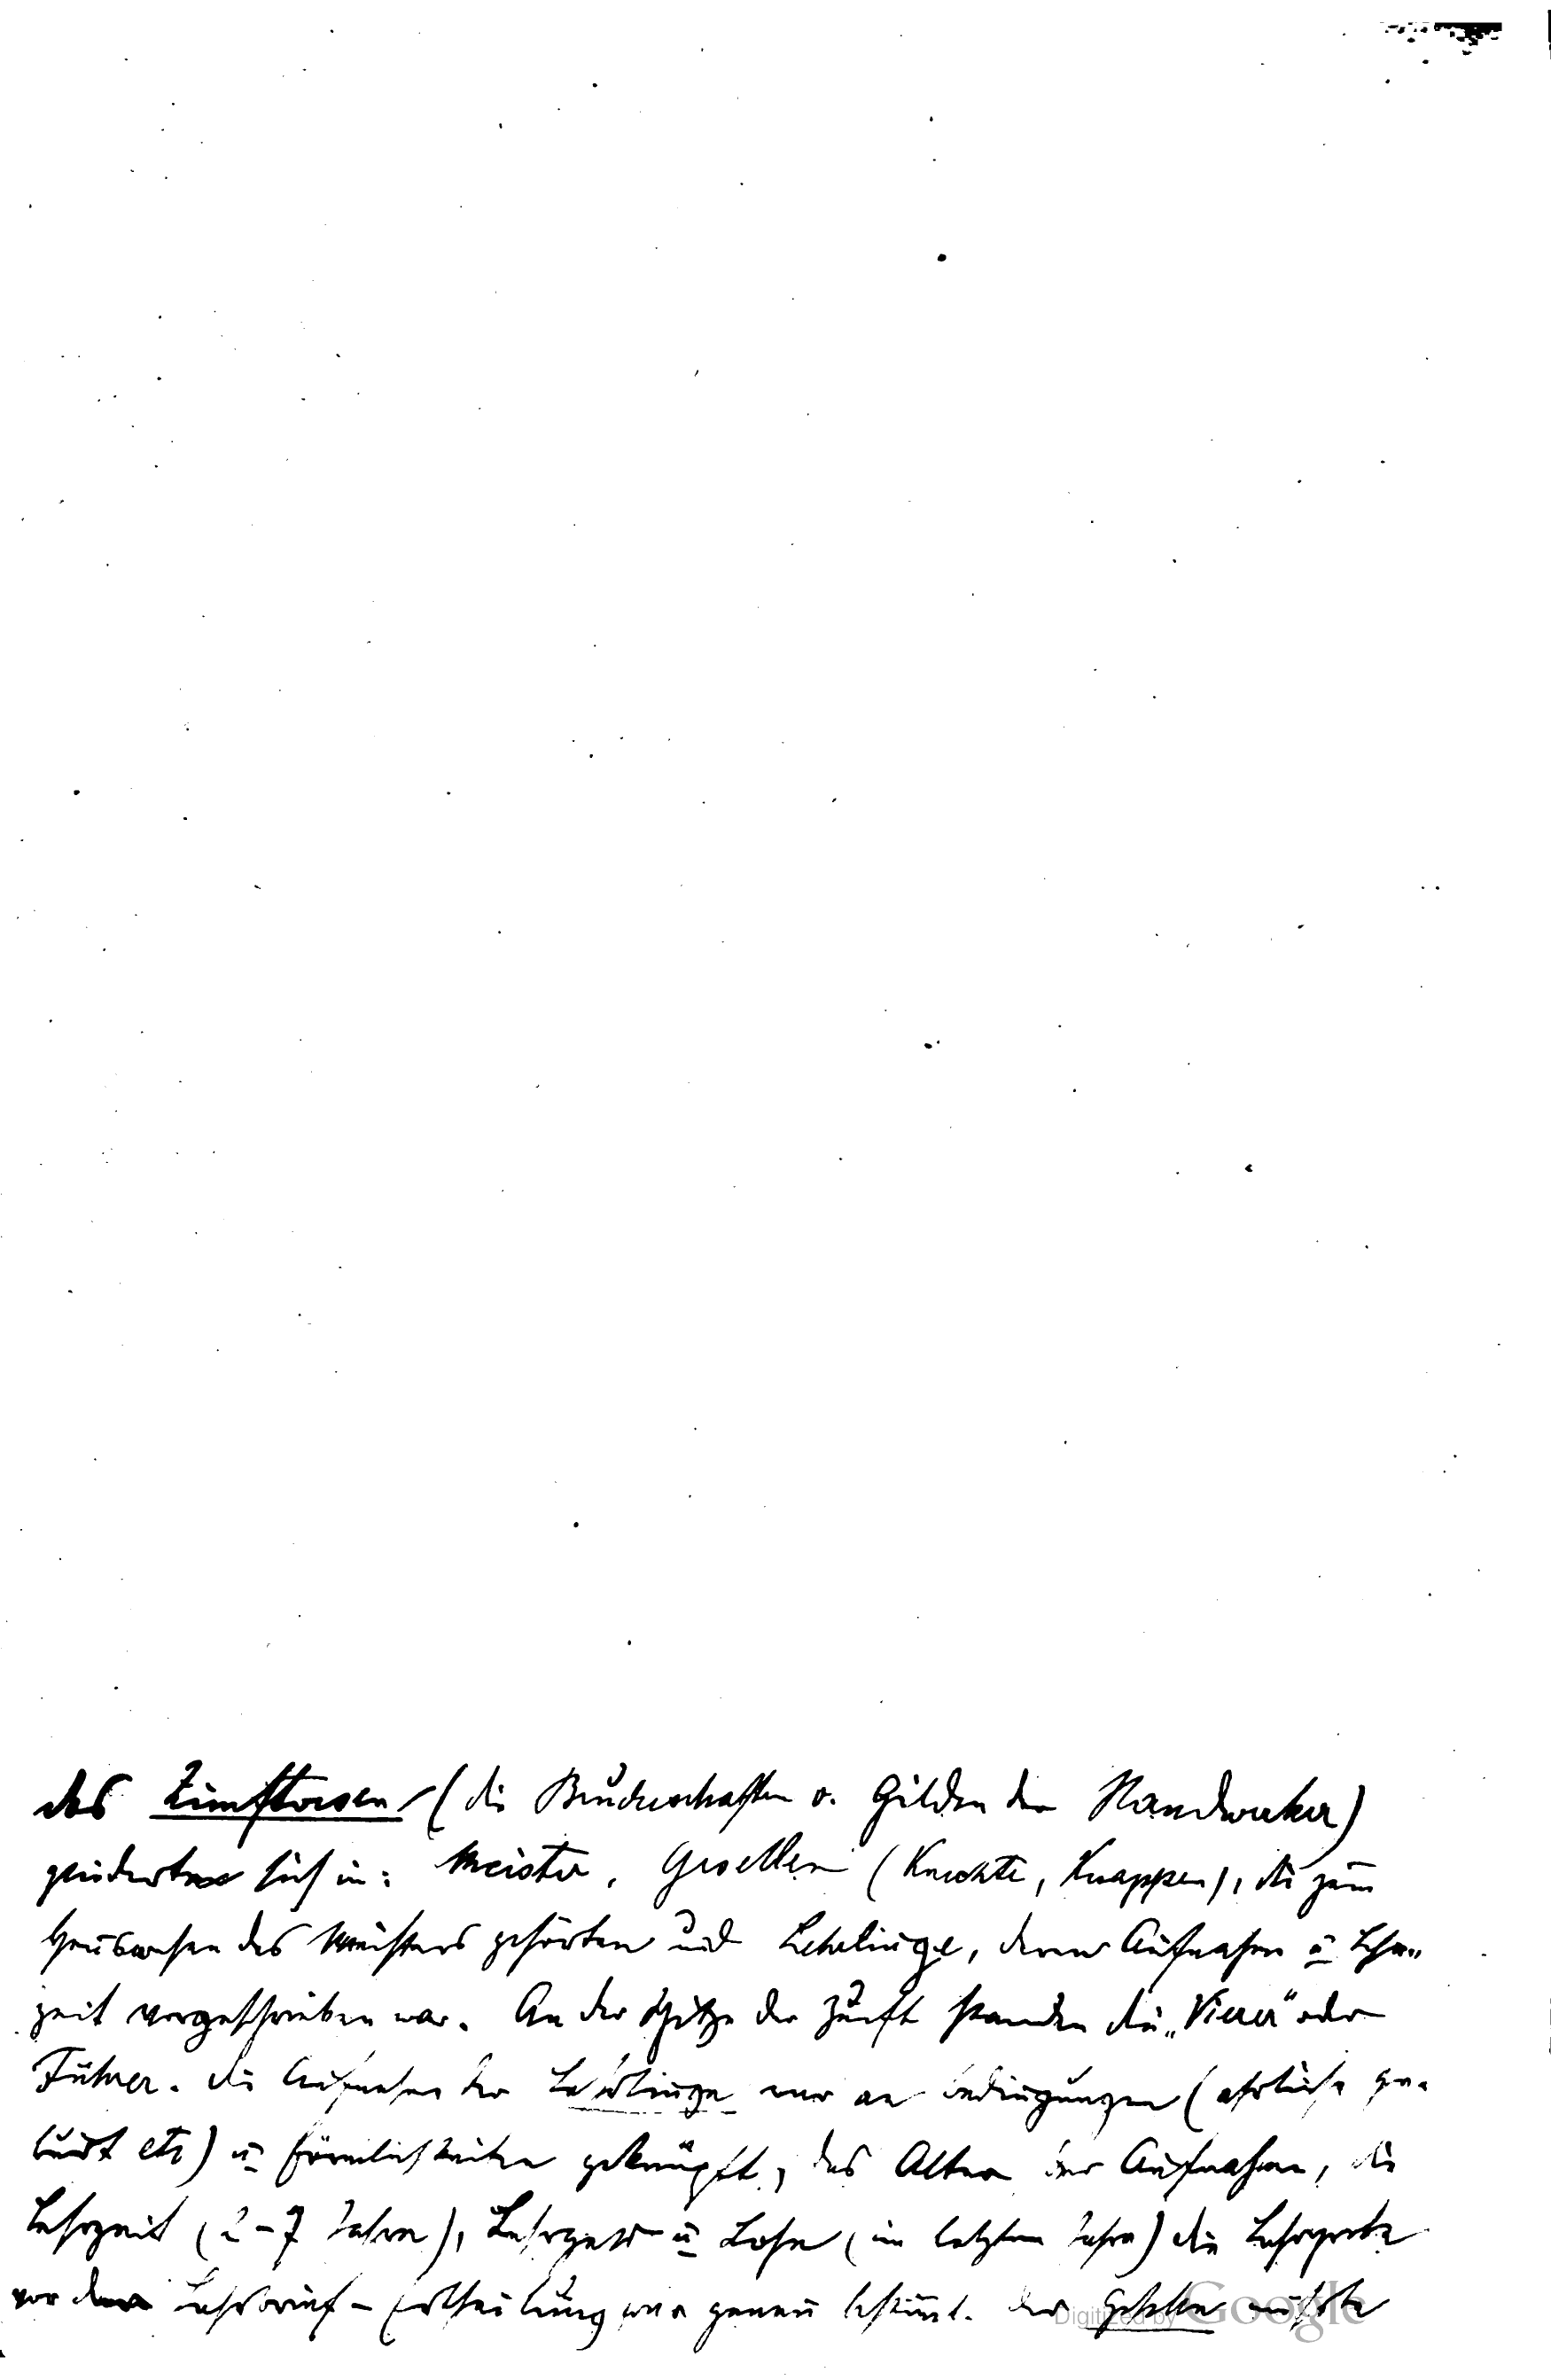 das Zunftwesen (die Bruderschaften o. Gilden der Handwerker)
gliederten sich in: Meister, Gesellen (Knechte, Knappen), die zum
Hauswesen des Meisters gehörten und Lehrlinge, deren Aufnahme u Lehr„
zeit vorgeschrieben war. An der Spitze der Zunft standen die „Vierer“ oder
Führer. die Aufnahme der Lehrlinge war an bedingungen (ehrliche ge„
burt etc) u förmlichkeiten geknüpft, das Alter der Aufnahme, die
Lehrzeit (2-7 Jahre), Lehrgeld u Lohn (im letzten Jahre) die Lehrprobe
vor der Lehrbrief-Ertheilung war genau bestimmt. der Geselle mußte
Digitized by Google